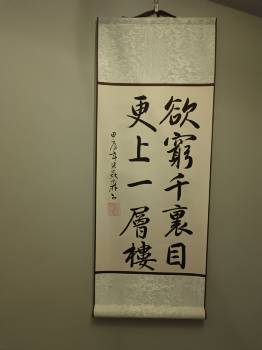 欲窮千裏目
更上一層樓